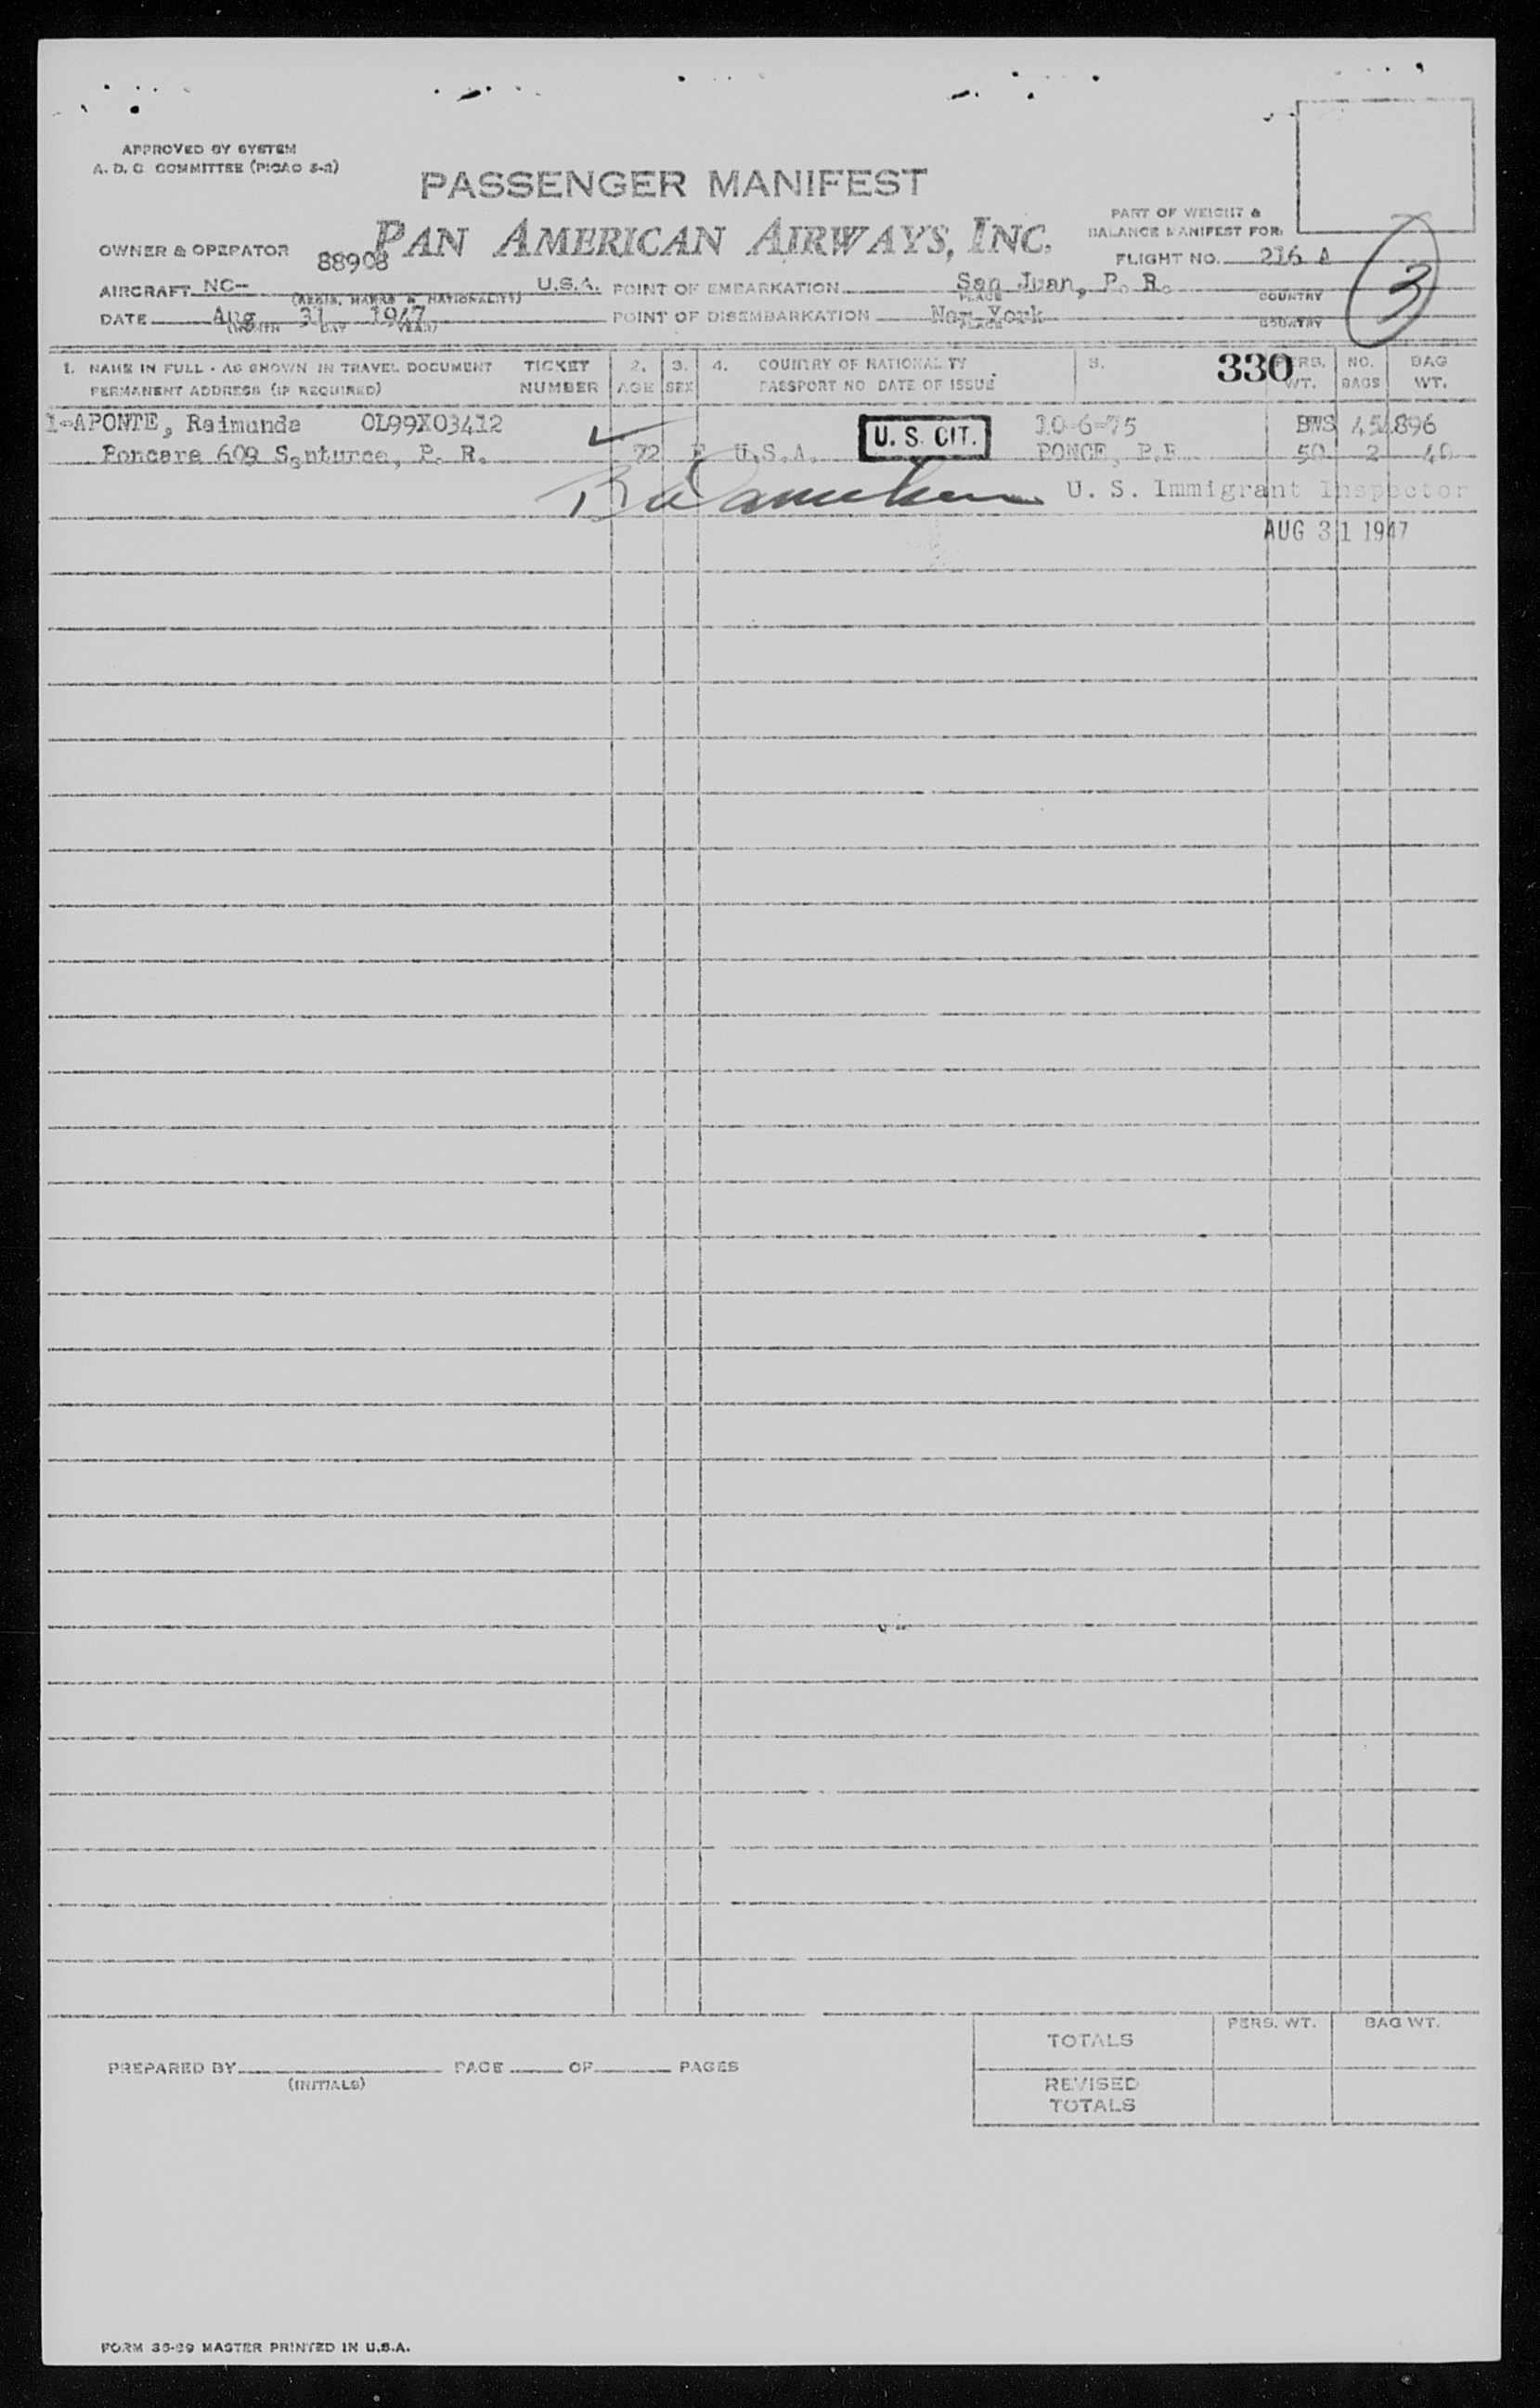 APPROVED BY SYSTEM
A. D. C COMMITTEE (PICAO S-2)
PASSENGER MANIFEST
PAN AMERICAN AIRWAYS, INC.
PART OF WEIGHT &
BALANCE MANIFEST FOR:
OWNER & OPERATOR
88908
FLIGHT NO. 216 A
3
AIRCRAFT NC- U.S.A. POINT OF EMBARKATION San Juan, P. R.
(REGIS. MARKS & NATIONALITY) PLACE COUNTRY
DATE Aug 31 1947 POINT OF DISEMBARKATION New York
(MONTH DAY YEAR) PLACE COUNTRY
1. NAME IN FULL - AS SHOWN IN TRAVEL DOCUMENT TICKET 2. 3. 4. COUNTRY OF NATIONALITY 5. 330 PERS. NO. BAG
PERMANENT ADDRESS (IF REQUIRED) NUMBER AGE SEX PASSPORT NO DATE OF ISSUE WT. BAGS WT.
1-APONTE, Raimunda OL99X03412 U. S. CIT. 10-6-75 BWS 454896
609 Santurce, P. R. 72 F U.S.A. PONCE, P.R. 50 2 40
U. S. Immigrant Inspector
AUG 31 1947
TOTALS PERS. WT. BAG WT.
PREPARED BY PAGE OF PAGES
(INITIALS)
REVISED
TOTALS
FORM 35-29 MASTER PRINTED IN U.S.A.